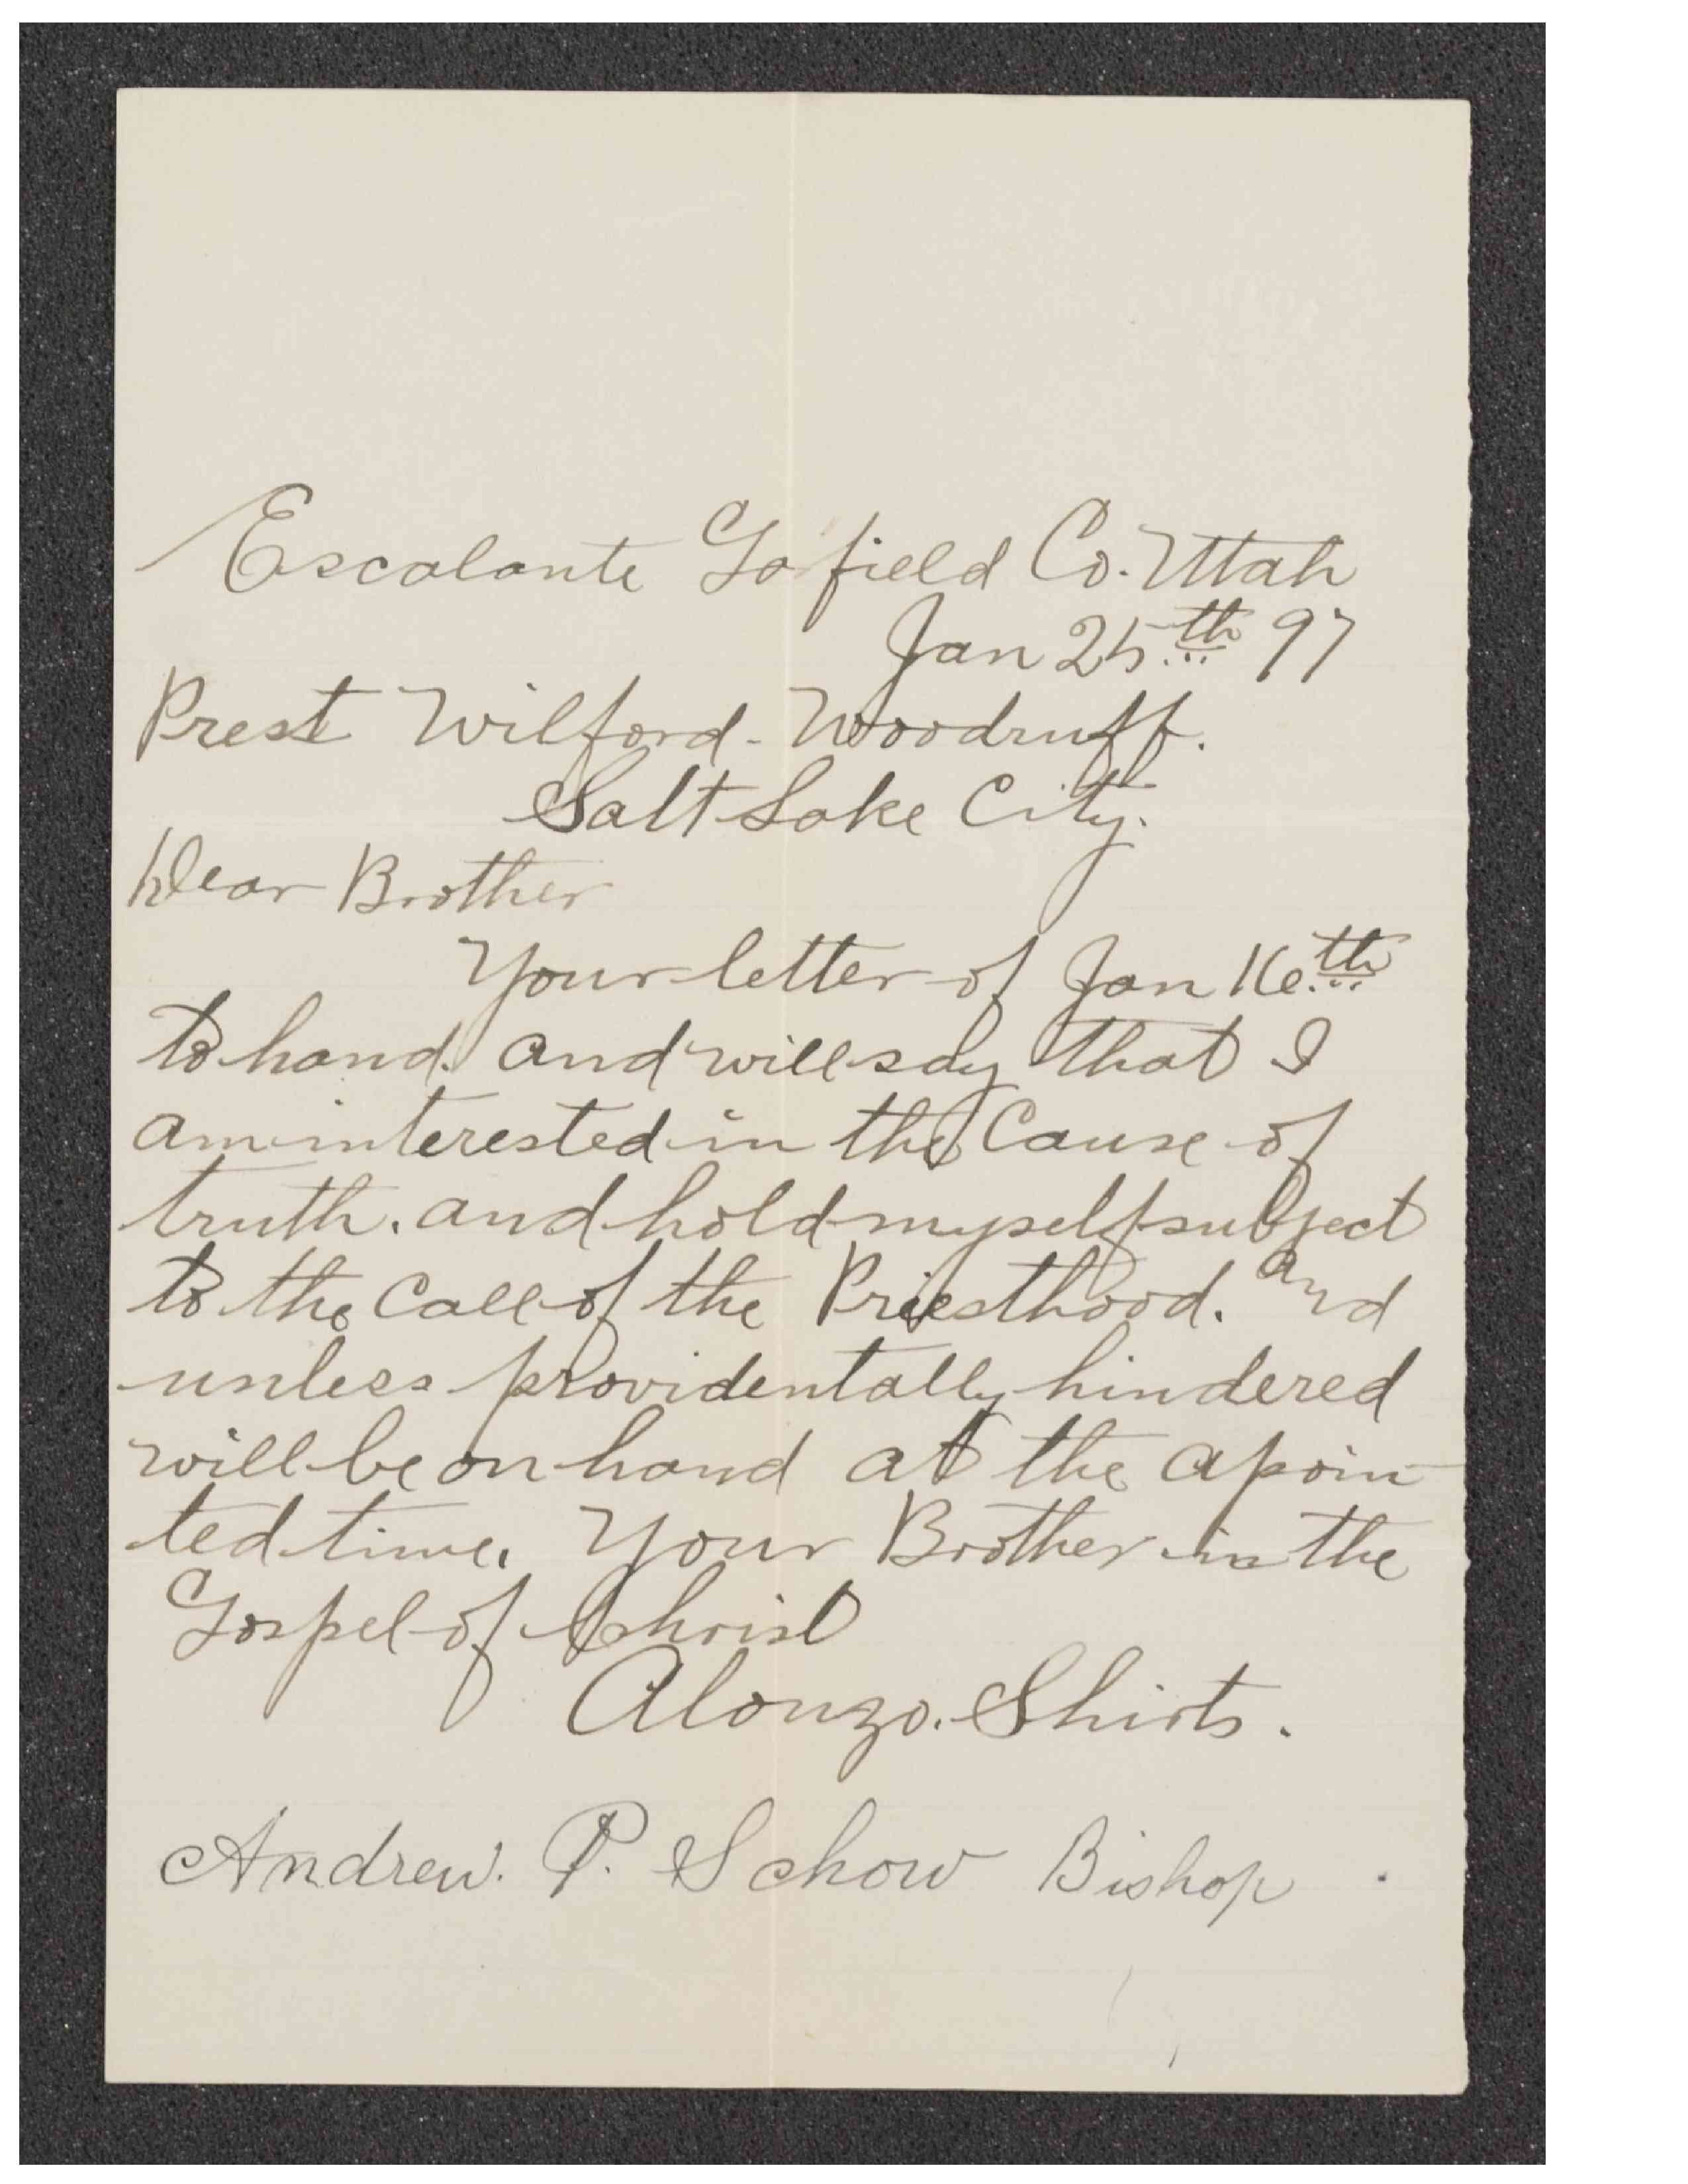 Escalante Gafield Co. Utah
Jan 25th 97
Prest Wilford Woodruff.
Salt Lake City.
Dear Brother
Your letter of Jan 16th
to hand. and will say that I
am interested in the Cause of
truth. and hold myself subject
to the Call of the Priesthood. and
unless providentally hindered
will be on hand at the apoin
ted time. Your Brother in the
Gospel of Christ
Alonzo. Shirts.
Andrew. P. Schow Bishop